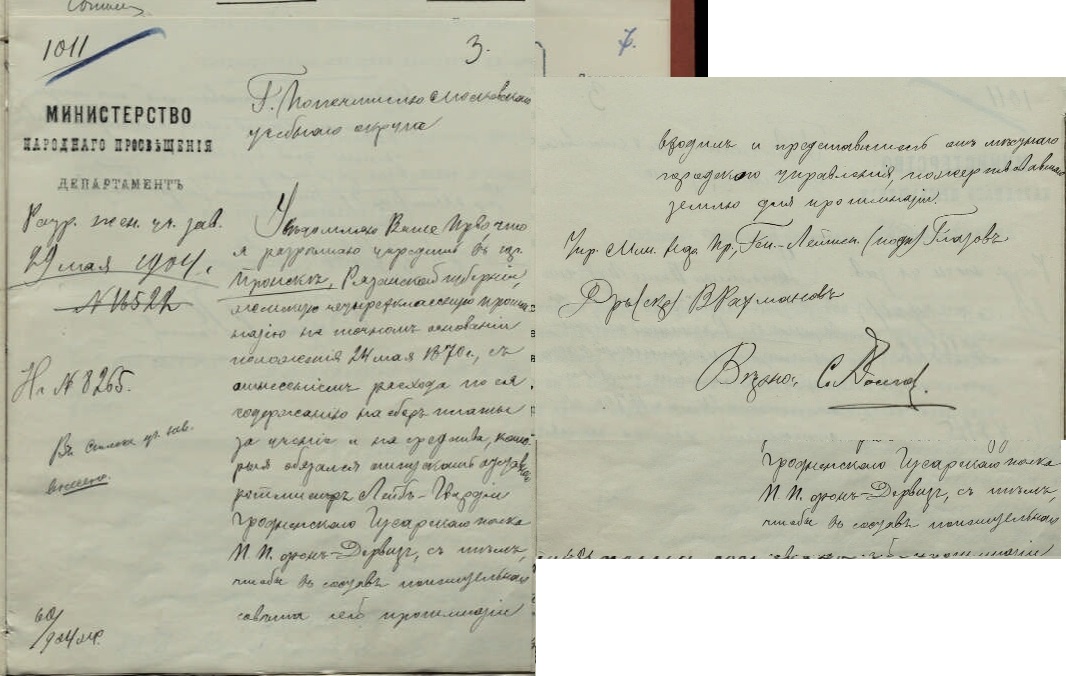 1011
3.
7.
МИНИСТЕРСТВО
НАРОДНАГО ПРОСВѢЩЕНІЯ
ДЕПАРТАМЕНТЪ
Разр. жен. уч. зав.
29 мая 1904 г.
№ 16522
На № 8265.
Въ списокъ уч. зав.
внесено.
60/904 г.
Г. Попечителю Московскаго
учебнаго округа
Увѣдомляю Ваше Прво что
я разрѣшаю учредить въ гор.
Пронскѣ, Рязанской губерніи,
женскую четырехклассную прогим-
назію на точномъ основаніи
положенія 24 мая 1870 г., съ
отнесеніемъ расхода по ея
содержанію на сборъ платы
за ученіе и на средства, кото-
рыя обязался отпускать
ротмистръ Лейбъ-Гвардіи
Гродненскаго Гусарскаго полка
П. П. фонъ-Дервизъ, съ тѣмъ,
чтобы въ составъ попечительнаго
совѣта сей прогимназіи
входилъ и представитель отъ мѣстнаго
городского управленія, пожертвовавшаго
землю для прогимназіи.
Упр. Мин. Нар. Пр., Ген.-Лейтен. (подп.) Глазовъ
Дир. (скр.) В Рахмановъ
Вѣрно: С.
Гродненскаго Гусарскаго полка
П. П. фонъ-Дервизъ, съ тѣмъ,
чтобы въ составъ попечительнаго